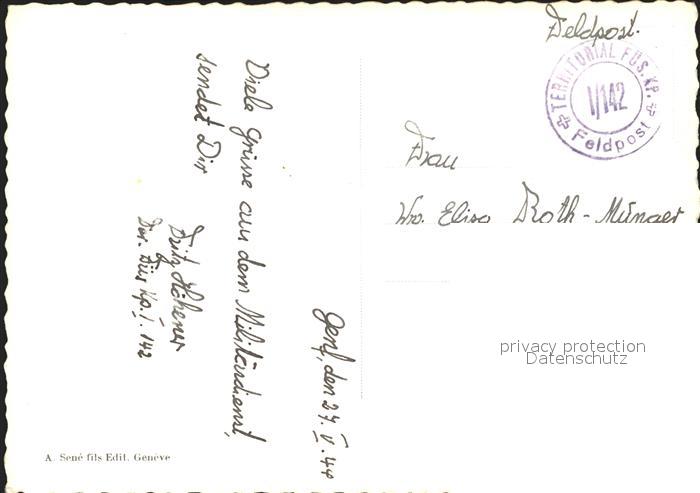 Feldpost.
TERRITORIAL FÜS. KP.
I/142
Feldpost
Frau
Wv. Elisa Roth-
privacy protection
Datenschutz
Genf, den 27. V. 44
Viele Grüsse aus dem Militärdienst,
sendet Dir
Fritz
Ter. Füs Kp. I. 142
A. Sené fils Edit. Genève